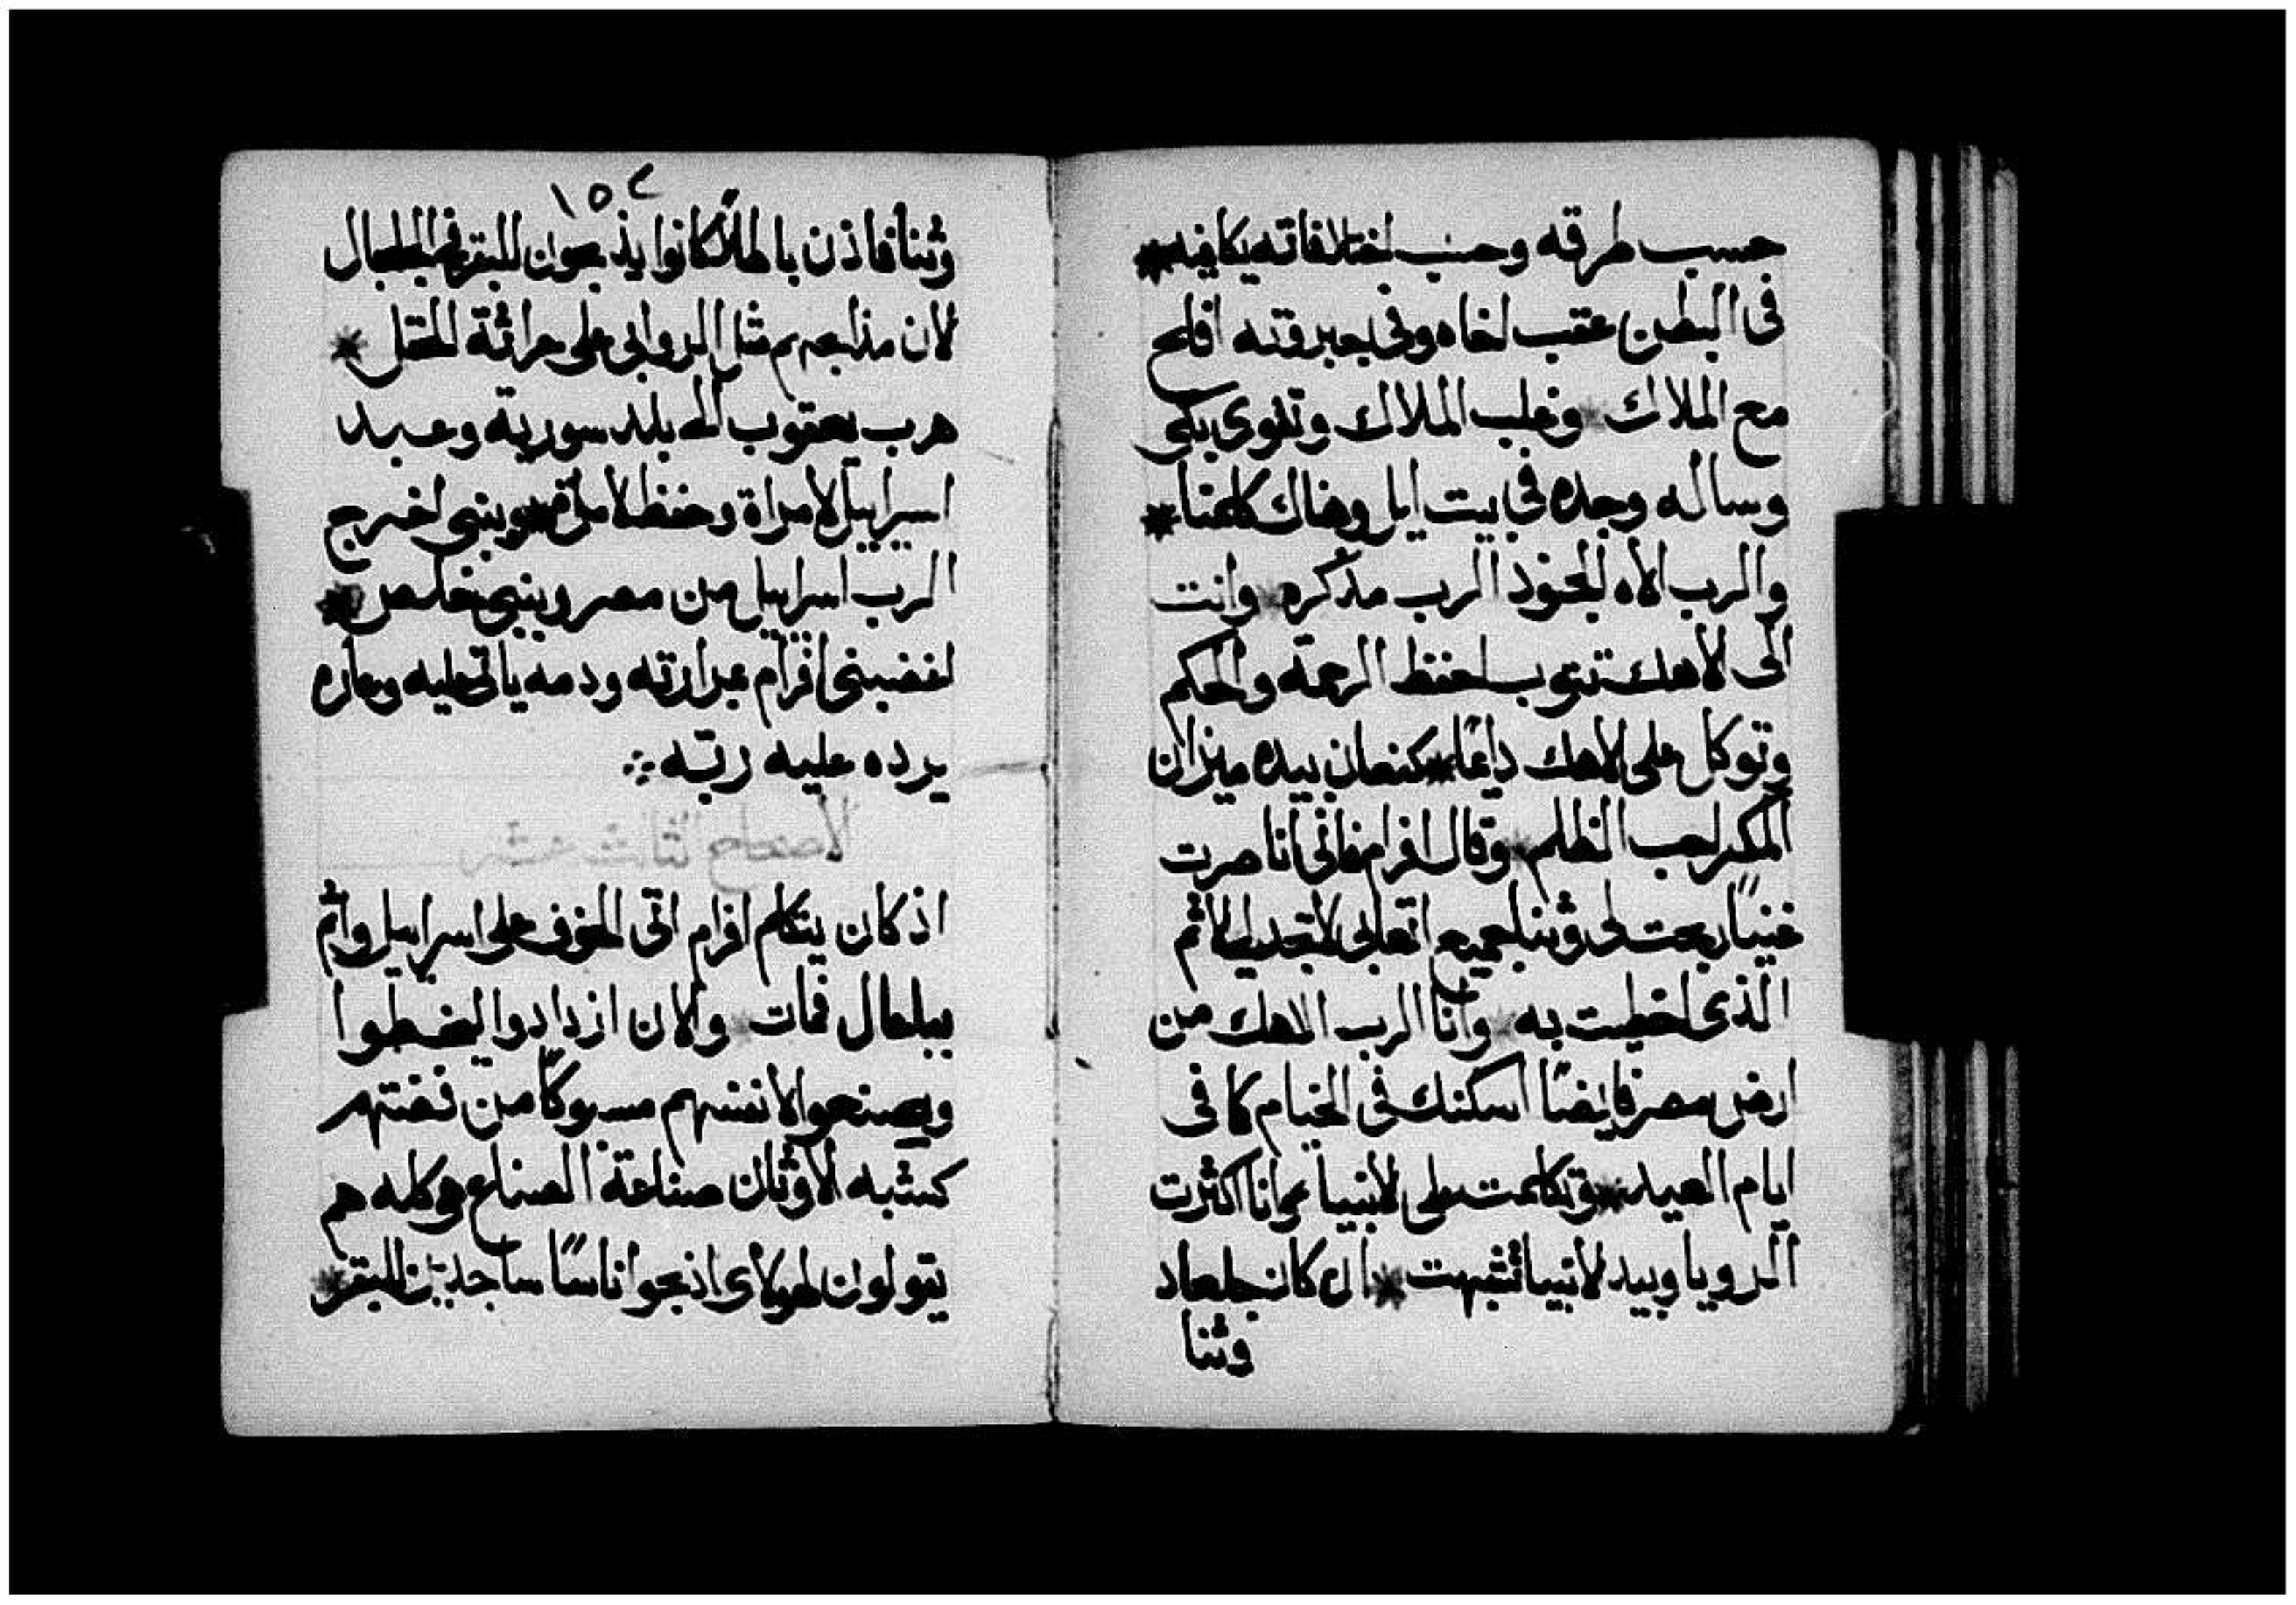 حسب طرقه وحسب اختلافاته يكافيه *
في البطن عقب اخاه وفي جبروته افلح
مع الملاك * وغلب الملاك وتقوى بكى
وساله وجده في بيت ايل وهناك كلمنا *
والرب الاه الجنود الرب مذكره * وانت
الى الاهك تتوب احفظ الرحمة والحكم
وتوكل على الاهك دايمًا * كنعان بيده ميزان
المكر احب الظلم * وقال افرام فاني انا صرت
غنيًا ربحت لي وثنا جميع اتعابي لا تجد لي الاثم
الذي اخطيت به * وانا الرب الاهك من
ارض مصر فايضًا اسكنك في الخيام كما في
ايام العيد * وتكلمت على الانبيا وانا اكثرت
الرويا وبيد الانبيا تشبهت * ان كان جلعاد
وثنا
١٥٢
وثنا فاذن باطلاً كانوا يذبحون للبقر في الجلجال
لان مذابحهم مثل الروابي على حراثة الحقل *
هرب يعقوب الى بلد سورية وعبد
اسراييل لامراة وحفظ لامراة * وبنبي اخرج
الرب اسراييل من مصر وبنبي خلص *
اغضبني افرام بمرارته ودمه ياتي عليه وعاره
يرده عليه ربّه
الاصحاح الثالث عشر
اذ كان يتكلم افرام اتى الخوف على اسراييل واثم
ببلعال فمات * والان ازدادوا ليخطوا
ويصنعوا لانفسهم مسبوكًا من فضتهم
كشبه الاوثان صناعة الصناع هو كله هم
يقولون لهولاى اذبحوا اناسًا ساجدين للبقر *